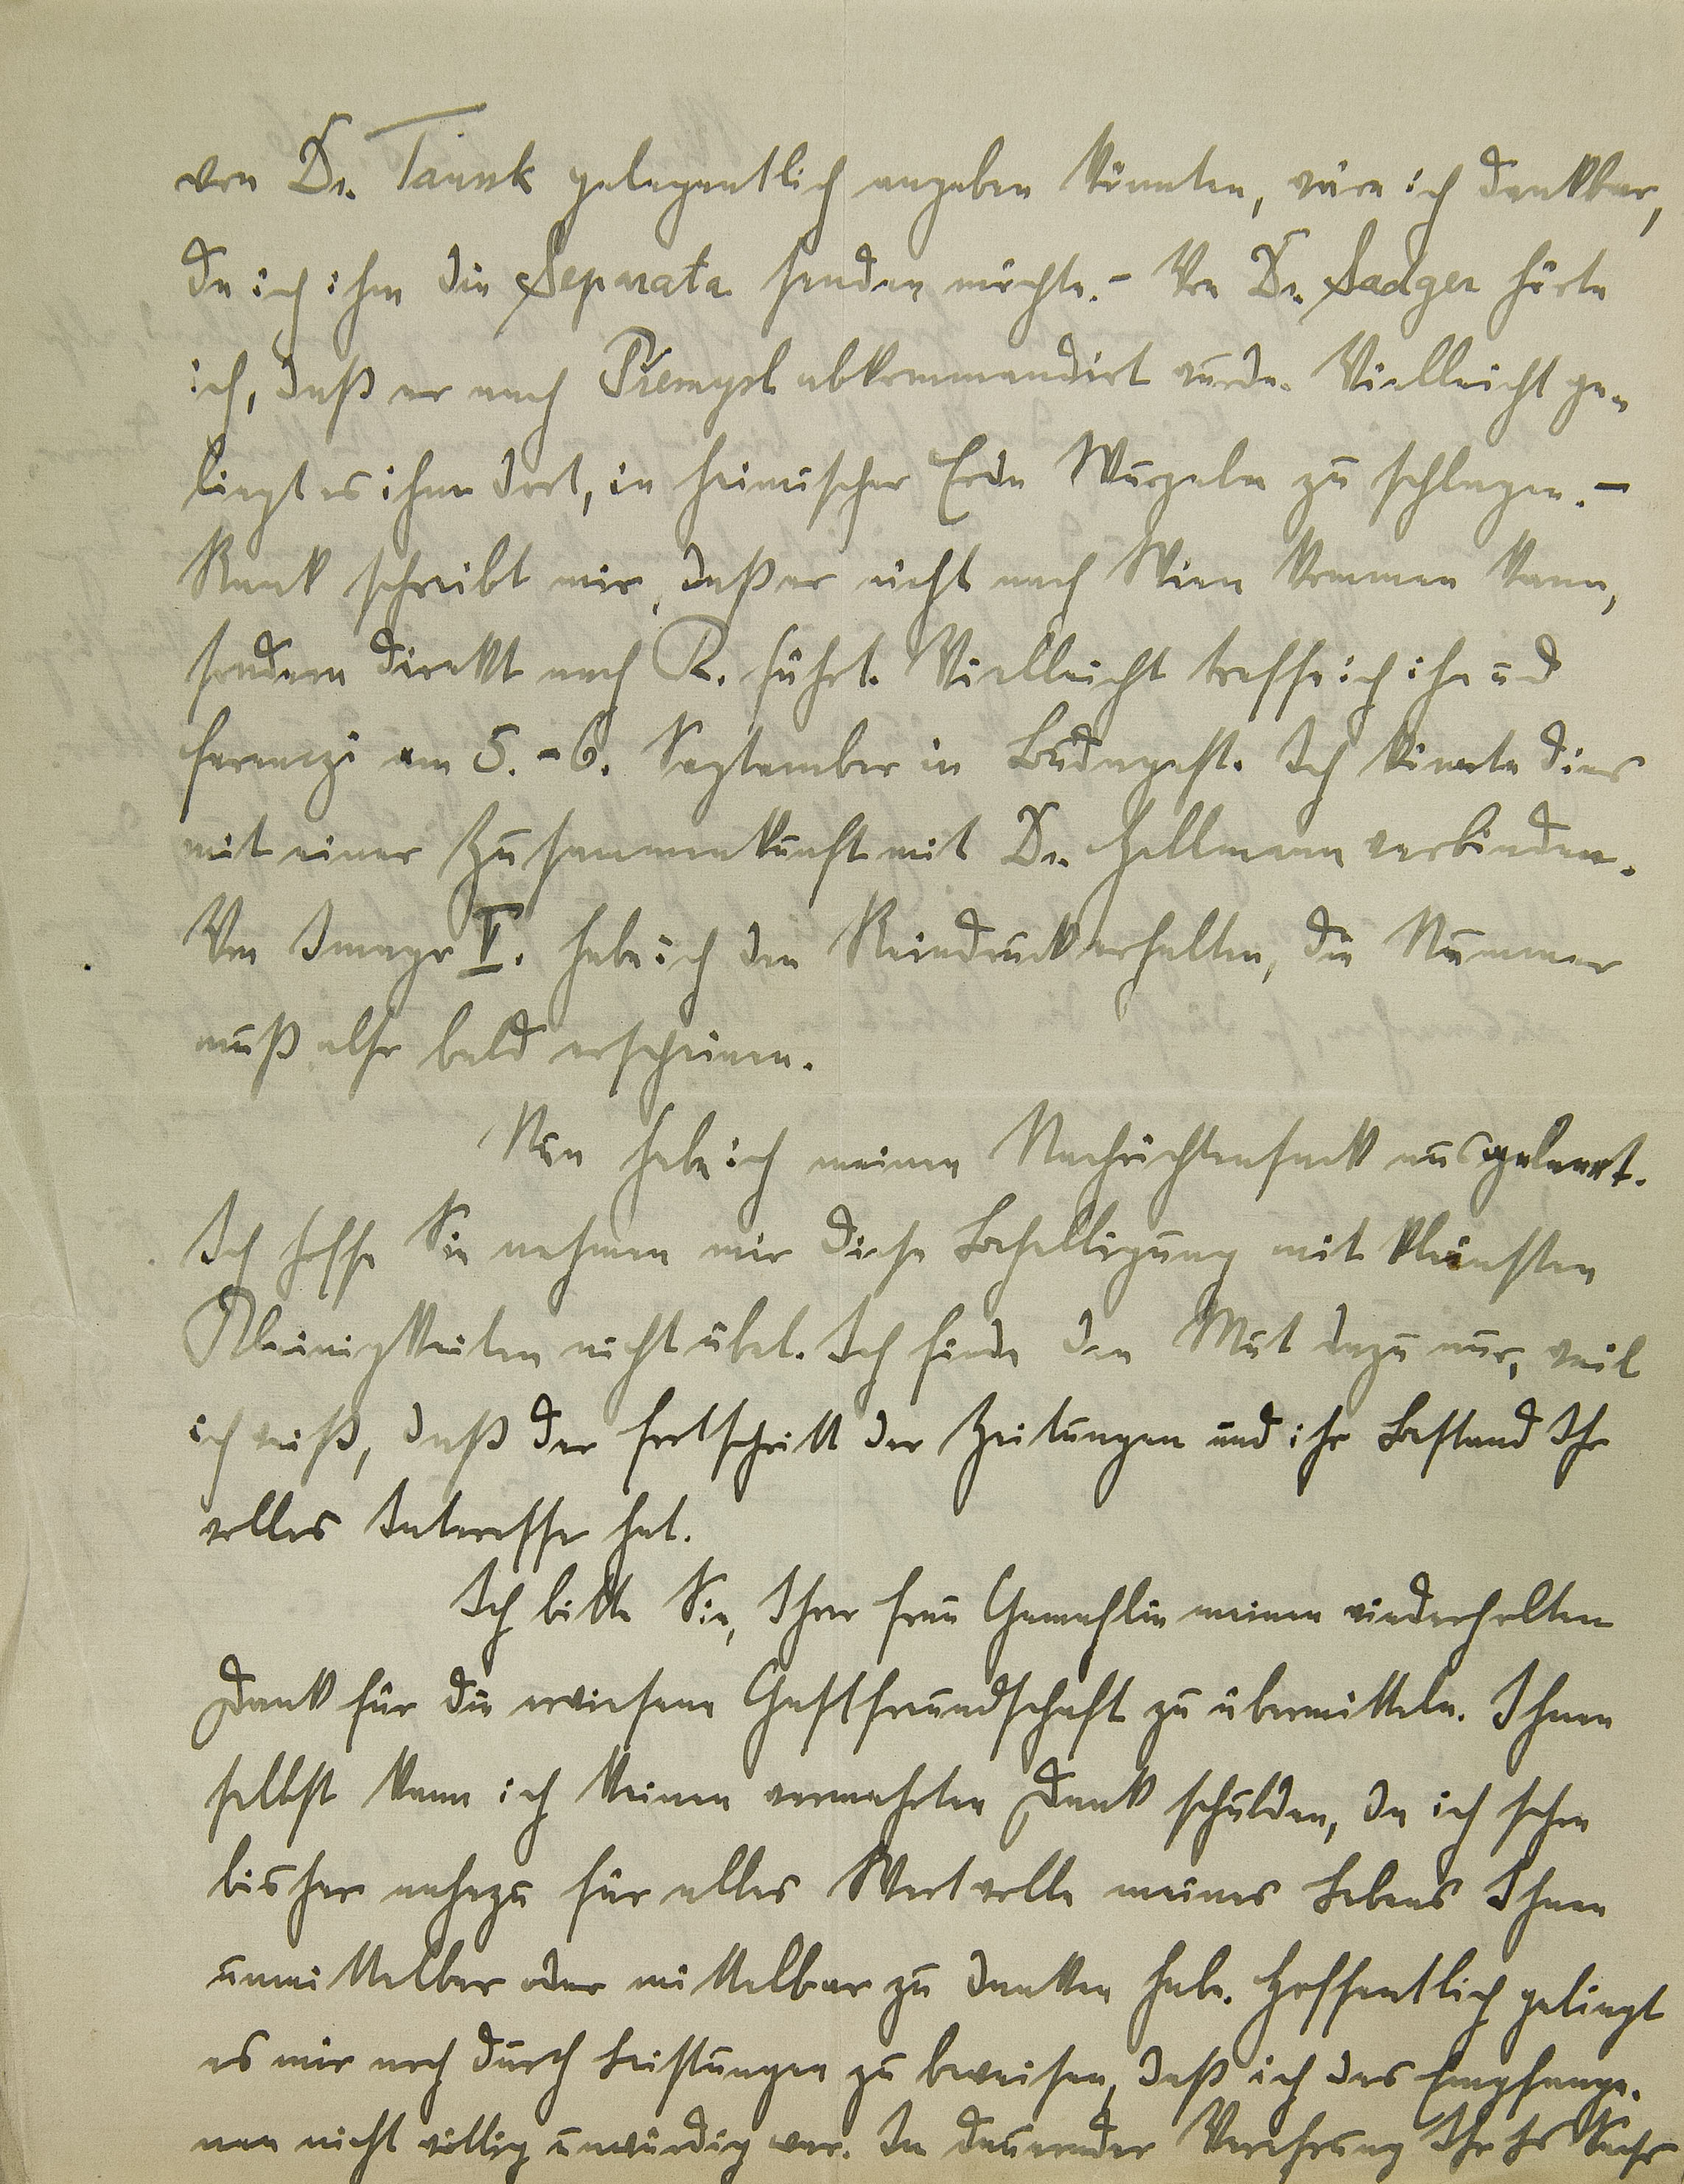 von Dr. Tausk gelegentlich angeben könnten, wäre ich dankbar,
da ich ihm die Separata senden möchte. – Von Dr. Sadger hörte
ich, daß er nach Přemysl abkommandirt wurde. Vielleicht ge-
lingt es ihm dort, in heimischer Erde Wurzeln zu schlagen. –
Rank schreibt mir, daß er nicht nach Wien kommen kann,
sondern direkt nach R. fährt. Vielleicht treffe ich ihn und
Ferenczi am 5. – 6. September in Budapest. Ich könnte dies
mit einer Zusammenkunft mit Dr. Hellmann verbinden.
Von Imago V. habe ich den Reindruck erhalten, die Nummer
muß also bald erscheinen.
Nun habe ich meinen Nachrichtensack ausgeleert.
Ich hoffe Sie nehmen mir diese Behelligung mit kleinsten
Kleinigkeiten nicht übel. Ich finde den Mut dazu nur, weil
ich weiß, daß der Fortschritt der Zeitungen und ihr Bestand Ihr
volles Interesse hat.
Ich bitte Sie, Ihrer Frau Gemahlin meinen wiederholten
Dank für die erwiesene Gastfreundschaft zu übermitteln. Ihnen
selbst kann ich keinen vermehrten Dank schulden, da ich schon
bisher nahezu für alles Wertvolle meines Lebens Ihnen
unmittelbar oder mittelbar zu danken habe. Hoffentlich gelingt
es mir noch durch Leistungen zu beweisen, daß ich des Empfange-
nen nicht völlig unwürdig war. In dauernder Verehrung Ihr Hs Sachs